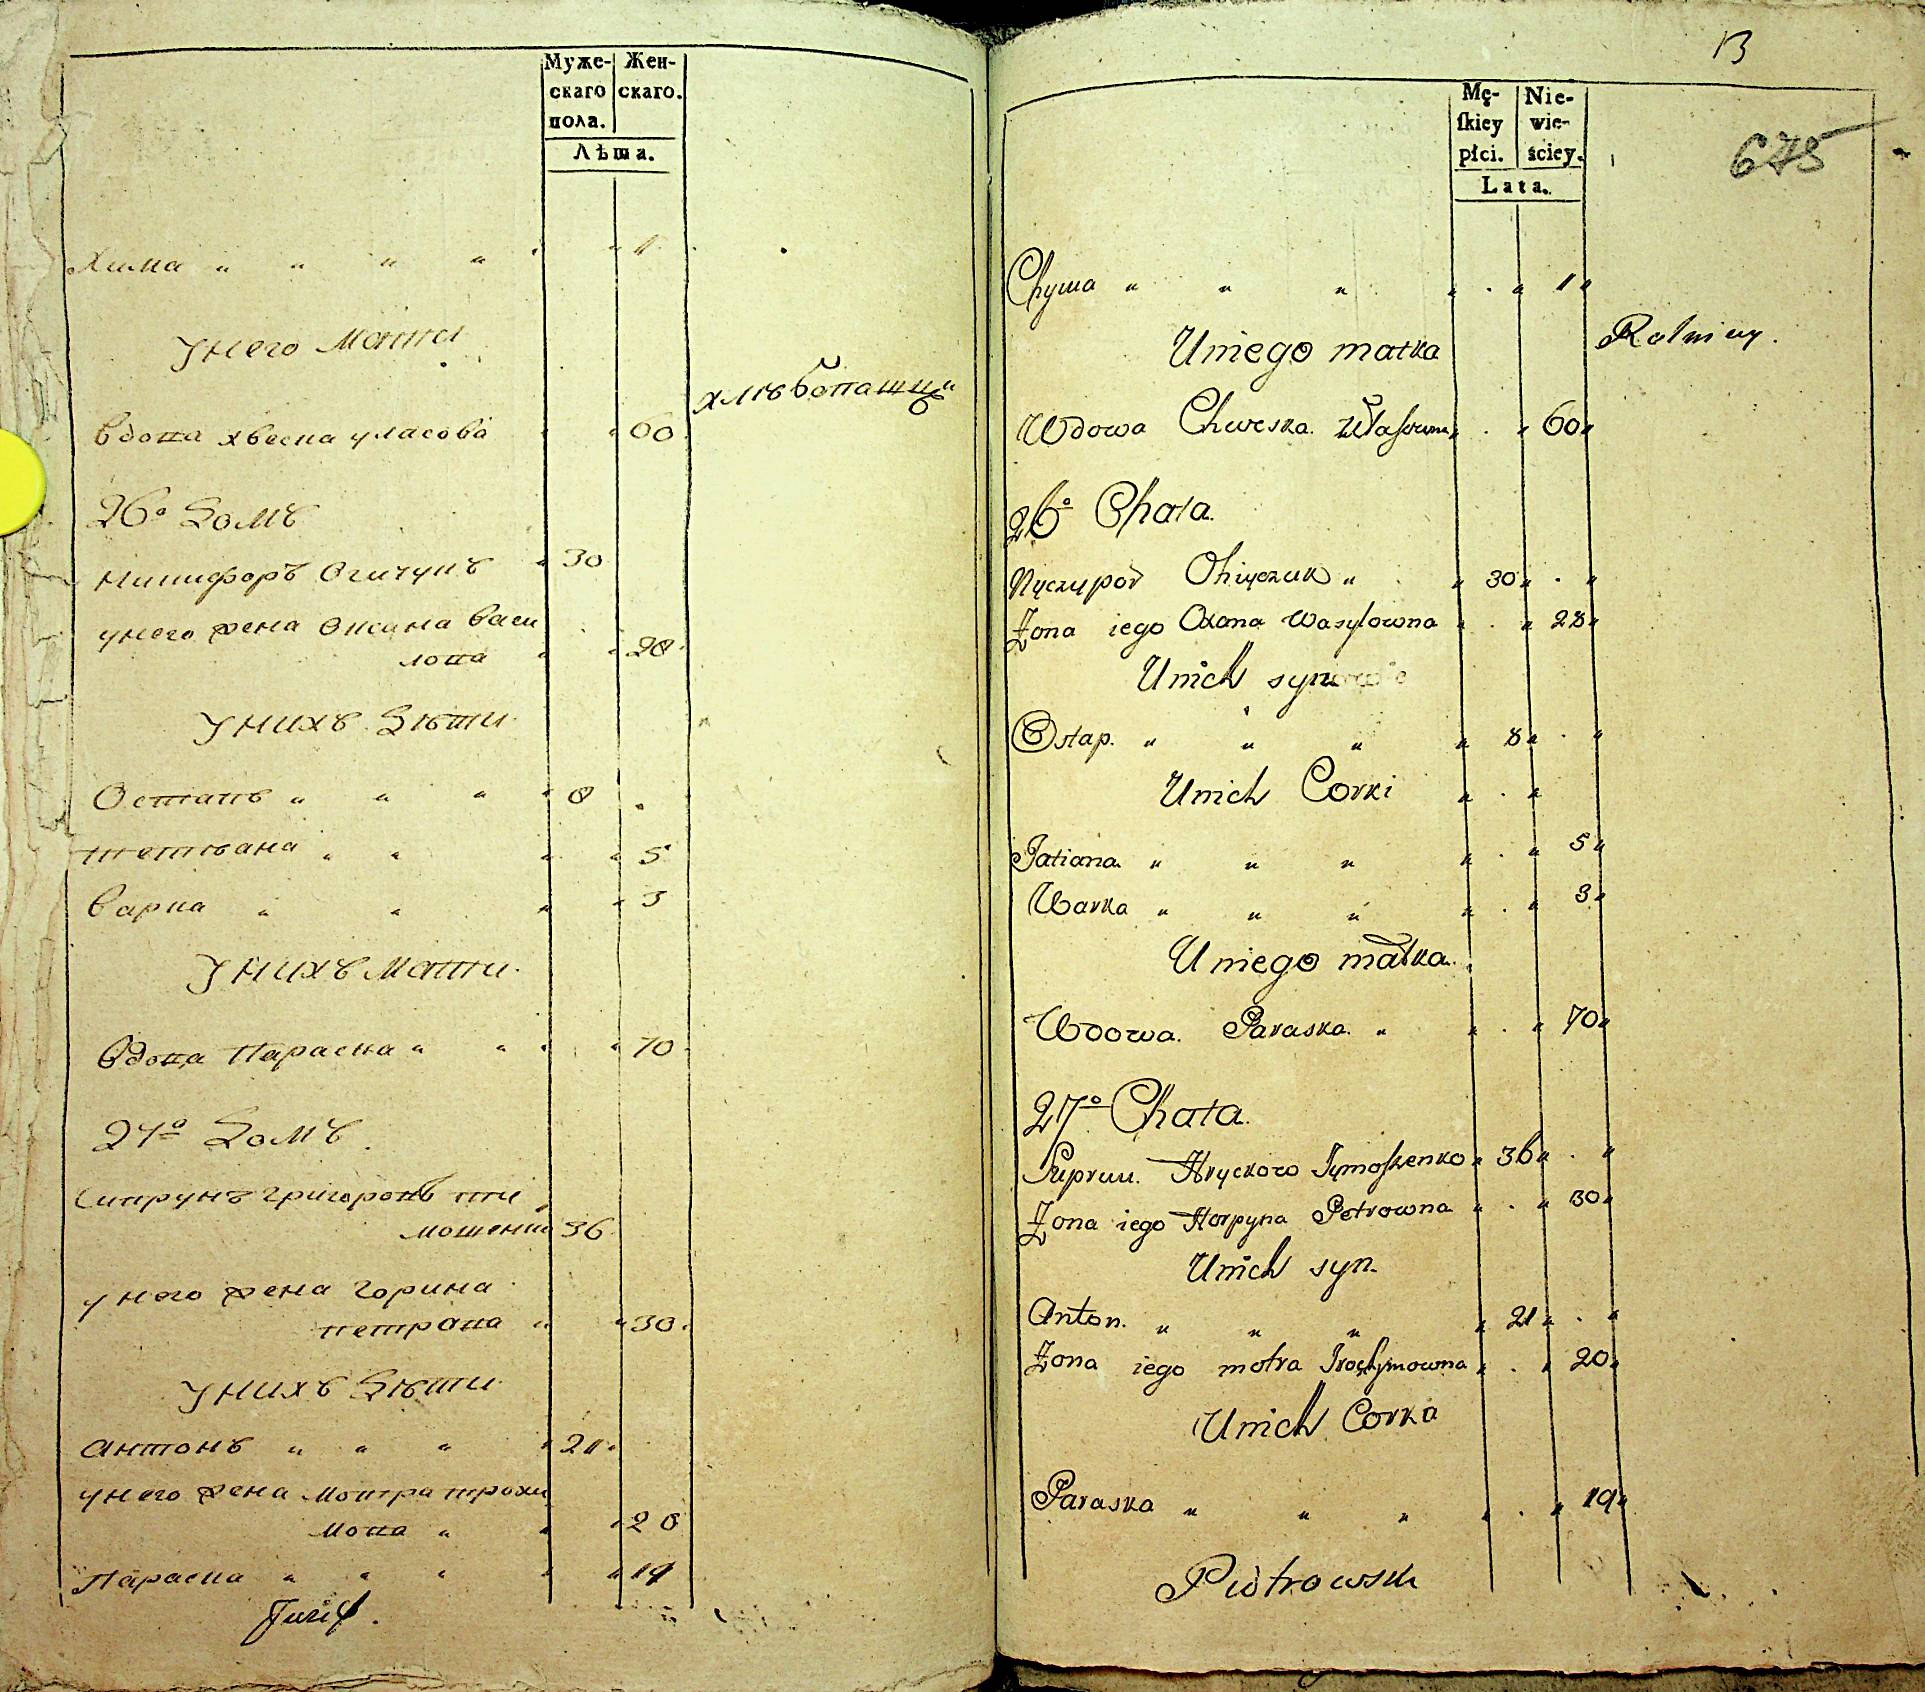 Муже-
скаго
пола.
Жен-
скаго.
Лѣта.
Хима 1
У него Мати
хлѣбопашцы
вдова Хвеска Уласова 60
26º Домъ
Никифоръ Огичукъ 30
у него жена Оксана васи
лова 28
У нихъ Дѣти
Остапъ 8
Тетяна 5
Варка 3
У нихъ Мати
Вдова Параска 70
27º Домъ
Супрунъ Григоровъ Ти
мошенко 36
у него жена Горпина
петрова 30
У нихъ Дѣти
Антонъ 21
у него жена Мотра трохи
мова 20
Параска 19
13
675
Mę-
ſkiey
płci.
Nie-
wie-
ściey.
Lata.
Chyma 1
U niego matka
Rolnicy.
Wdowa Chweska Własowna 60
26º Chata.
Nyczypor Ohiyczuk 30
Żona iego Oxana Wasylowna 28
U nich synowie
Ostap. 8
U nich Corki
Tatiana 5
Warka 3
U niego matka.
Wdowa. Paraska. 70
27º Chata.
Suprun. Hryckowo Tymoszenko 36
Żona iego Horpyna Petrowna 30
U nich syn.
Anton. 21
Żona iego motra Trochymowna 20
U nich Corka
Paraska 19
Piotrowski